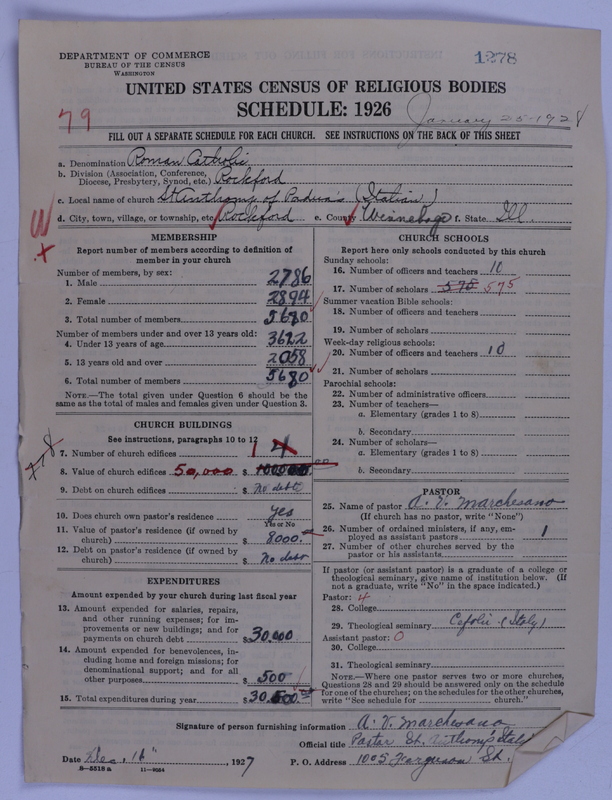 DEPARTMENT OF COMMERCE
BUREAU OF THE CENSUS
WASHINGTON
1278
UNITED STATES CENSUS OF RELIGIOUS BODIES
SCHEDULE: 1926
January 25-1928
79
FILL OUT A SEPARATE SCHEDULE FOR EACH CHURCH. SEE INSTRUCTIONS ON THE BACK OF THIS SHEET
a. Denomination Roman Catholic
b. Division (Association, Conference, Diocese, Presbytery, Synod, etc.) Rockford
c. Local name of church St Anthony of Padua's (Italian)
d. City, town, village, or township, etc. Rockford e. County Winnebago f. State Ill.
W
x
MEMBERSHIP
Report number of members according to definition of
member in your church
Number of members, by sex:
1. Male 2786
2. Female 2894
3. Total number of members 5680
Number of members under and over 13 years old:
4. Under 13 years of age 3622
5. 13 years old and over 2058
6. Total number of members 5680
NOTE.—The total given under Question 6 should be the
same as the total of males and females given under Question 3.
CHURCH BUILDINGS
See instructions, paragraphs 10 to 12
7. Number of church edifices 1 4
8. Value of church edifices 50,000 $ 100000
9. Debt on church edifices $ No debt
10. Does church own pastor's residence yes
Yes or No
11. Value of pastor's residence (if owned by
church) $ 8000.
12. Debt on pastor's residence (if owned by
church) $ No debt
EXPENDITURES
Amount expended by your church during last fiscal year
13. Amount expended for salaries, repairs,
and other running expenses; for im-
provements or new buildings; and for
payments on church debt $ 30.000
14. Amount expended for benevolences, in-
cluding home and foreign missions; for
denominational support; and for all
other purposes $ 500
15. Total expenditures during year $ 30.500
CHURCH SCHOOLS
Report here only schools conducted by this church
Sunday schools:
16. Number of officers and teachers 10
17. Number of scholars 575 575
Summer vacation Bible schools:
18. Number of officers and teachers
19. Number of scholars
Week-day religious schools:
20. Number of officers and teachers 10
21. Number of scholars
Parochial schools:
22. Number of administrative officers
23. Number of teachers—
a. Elementary (grades 1 to 8)
b. Secondary
24. Number of scholars—
a. Elementary (grades 1 to 8)
b. Secondary
PASTOR
25. Name of pastor A. V. Marchesano
(If church has no pastor, write "None")
26. Number of ordained ministers, if any, em-
ployed as assistant pastors 1
27. Number of other churches served by the
pastor or his assistants
If pastor (or assistant pastor) is a graduate of a college or
theological seminary, give name of institution below. (If
not a graduate, write "No" in the space indicated.)
Pastor: 4
28. College
29. Theological seminary Cefolu (Italy)
Assistant pastor: 0
30. College
31. Theological seminary
NOTE.—Where one pastor serves two or more churches,
Questions 28 and 29 should be answered only on the schedule
for one of the churches; on the schedules for the other churches,
write "See schedule for church."
Signature of person furnishing information A. V. Marchesano
Official title Pastor St. Anthony's Italy
Date Dec. 16", 1927 P. O. Address 1005 Ferguson St.
8—5518 a 11—9064